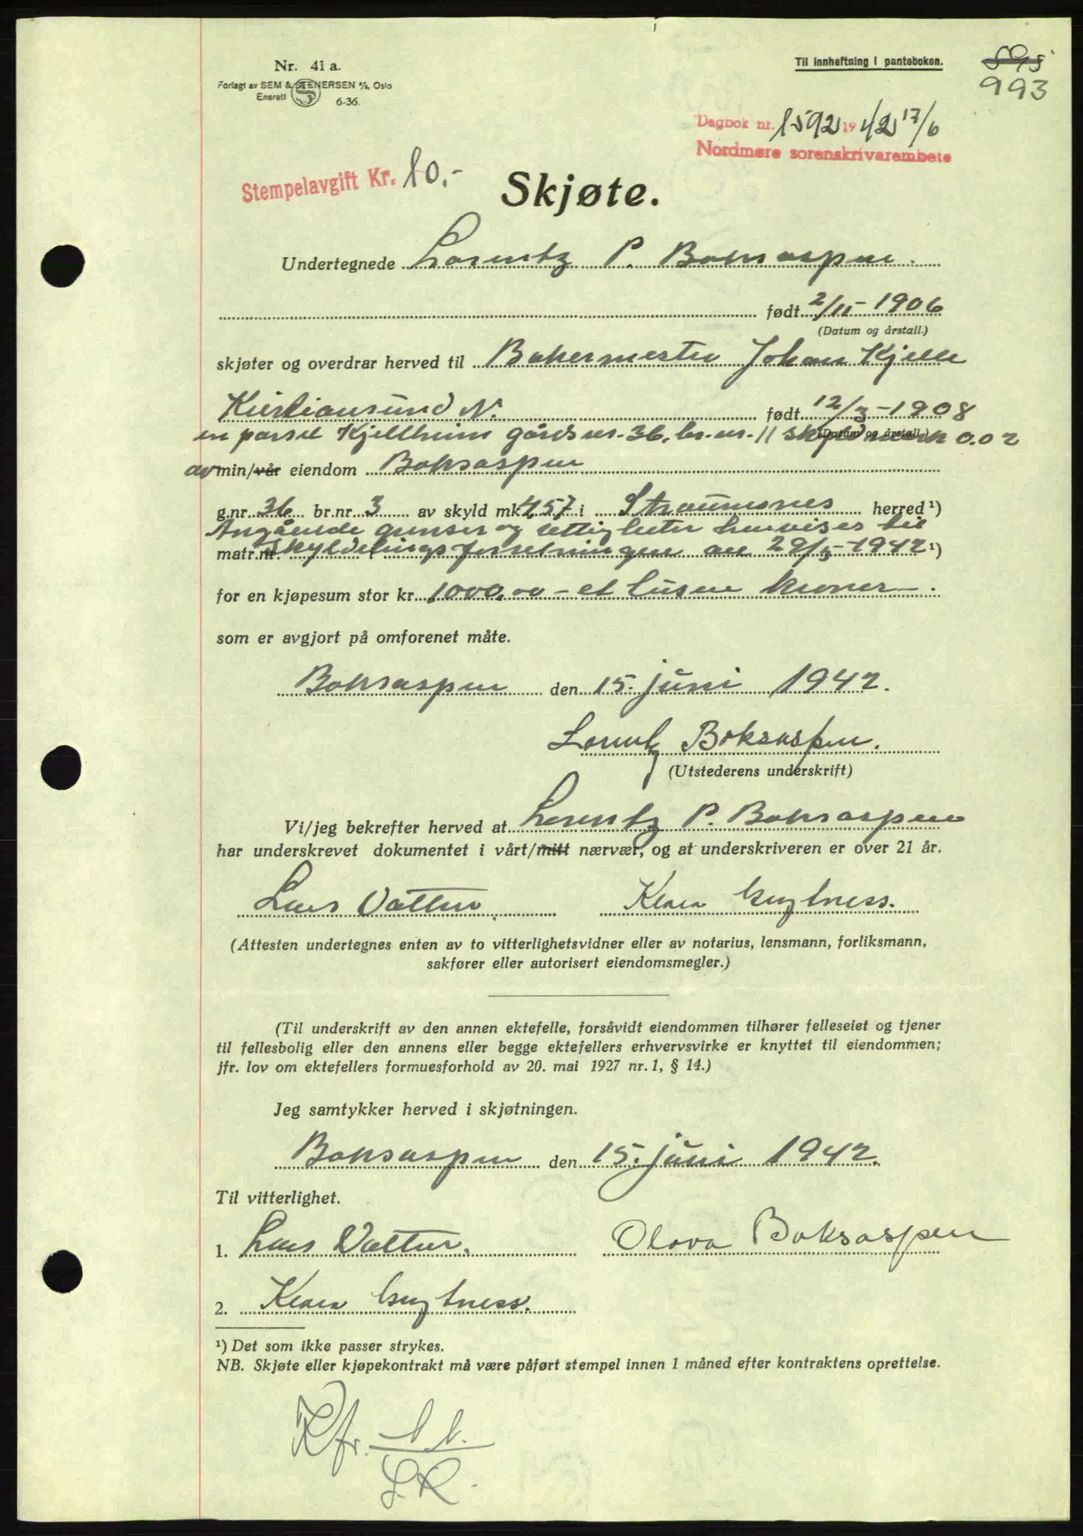 Nr. 41 a.
Forlagt av SEM & STENERSEN A/S, Oslo
Enerett 6-36.
Til innheftning i panteboken.
895
993
Dagbok nr. 1592 1942 17/6
Nordmøre sorenskrivarembete
Stempelavgift Kr. 10.-
Skjøte.
Undertegnede Lorentz P. Boksaspen.
født 2/11-1906
(Datum og årstall.)
skjøter og overdrar herved til Bakermester Johan Kjelle
Kristiansund N. født 12/3-1908
(Datum og årstall.)
en parsel Kjellheim gårdsnr. 36, br.nr. 11 skyldmark 0.02
av min/vår eiendom Boksaspen
g.nr. 36 br.nr. 3 av skyld mk. 4.57 i Straumsnes herred ¹)
Angående grenser og rettigheter henvises til
matr.nr. skyldelingsforretningen av 29/5-1942 ¹)
for en kjøpesum stor kr. 1000,00 - et tusen kroner -.
som er avgjort på omforenet måte.
Boksaspen den 15. juni 1942.
Lorentz Boksaspen.
(Utstederens underskrift)
Vi/jeg bekrefter herved at Lorentz P. Boksaspen
har underskrevet dokumentet i vårt/mitt nærvær, og at underskriveren er over 21 år.
Lars Klara
(Attesten undertegnes enten av to vitterlighetsvidner eller av notarius, lensmann, forliksmann,
sakfører eller autorisert eiendomsmegler.)
(Til underskrift av den annen ektefelle, forsåvidt eiendommen tilhører felleseiet og tjener
til fellesbolig eller den annens eller begge ektefellers erhvervsvirke er knyttet til eiendommen;
jfr. lov om ektefellers formuesforhold av 20. mai 1927 nr. 1, § 14.)
Jeg samtykker herved i skjøtningen.
Boksaspen den 15. juni 1942.
Til vitterlighet.
1. Lars Olova Boksaspen
2. Klara
¹) Det som ikke passer strykes.
NB. Skjøte eller kjøpekontrakt må være påført stempel innen 1 måned efter kontraktens oprettelse.
Kfr.